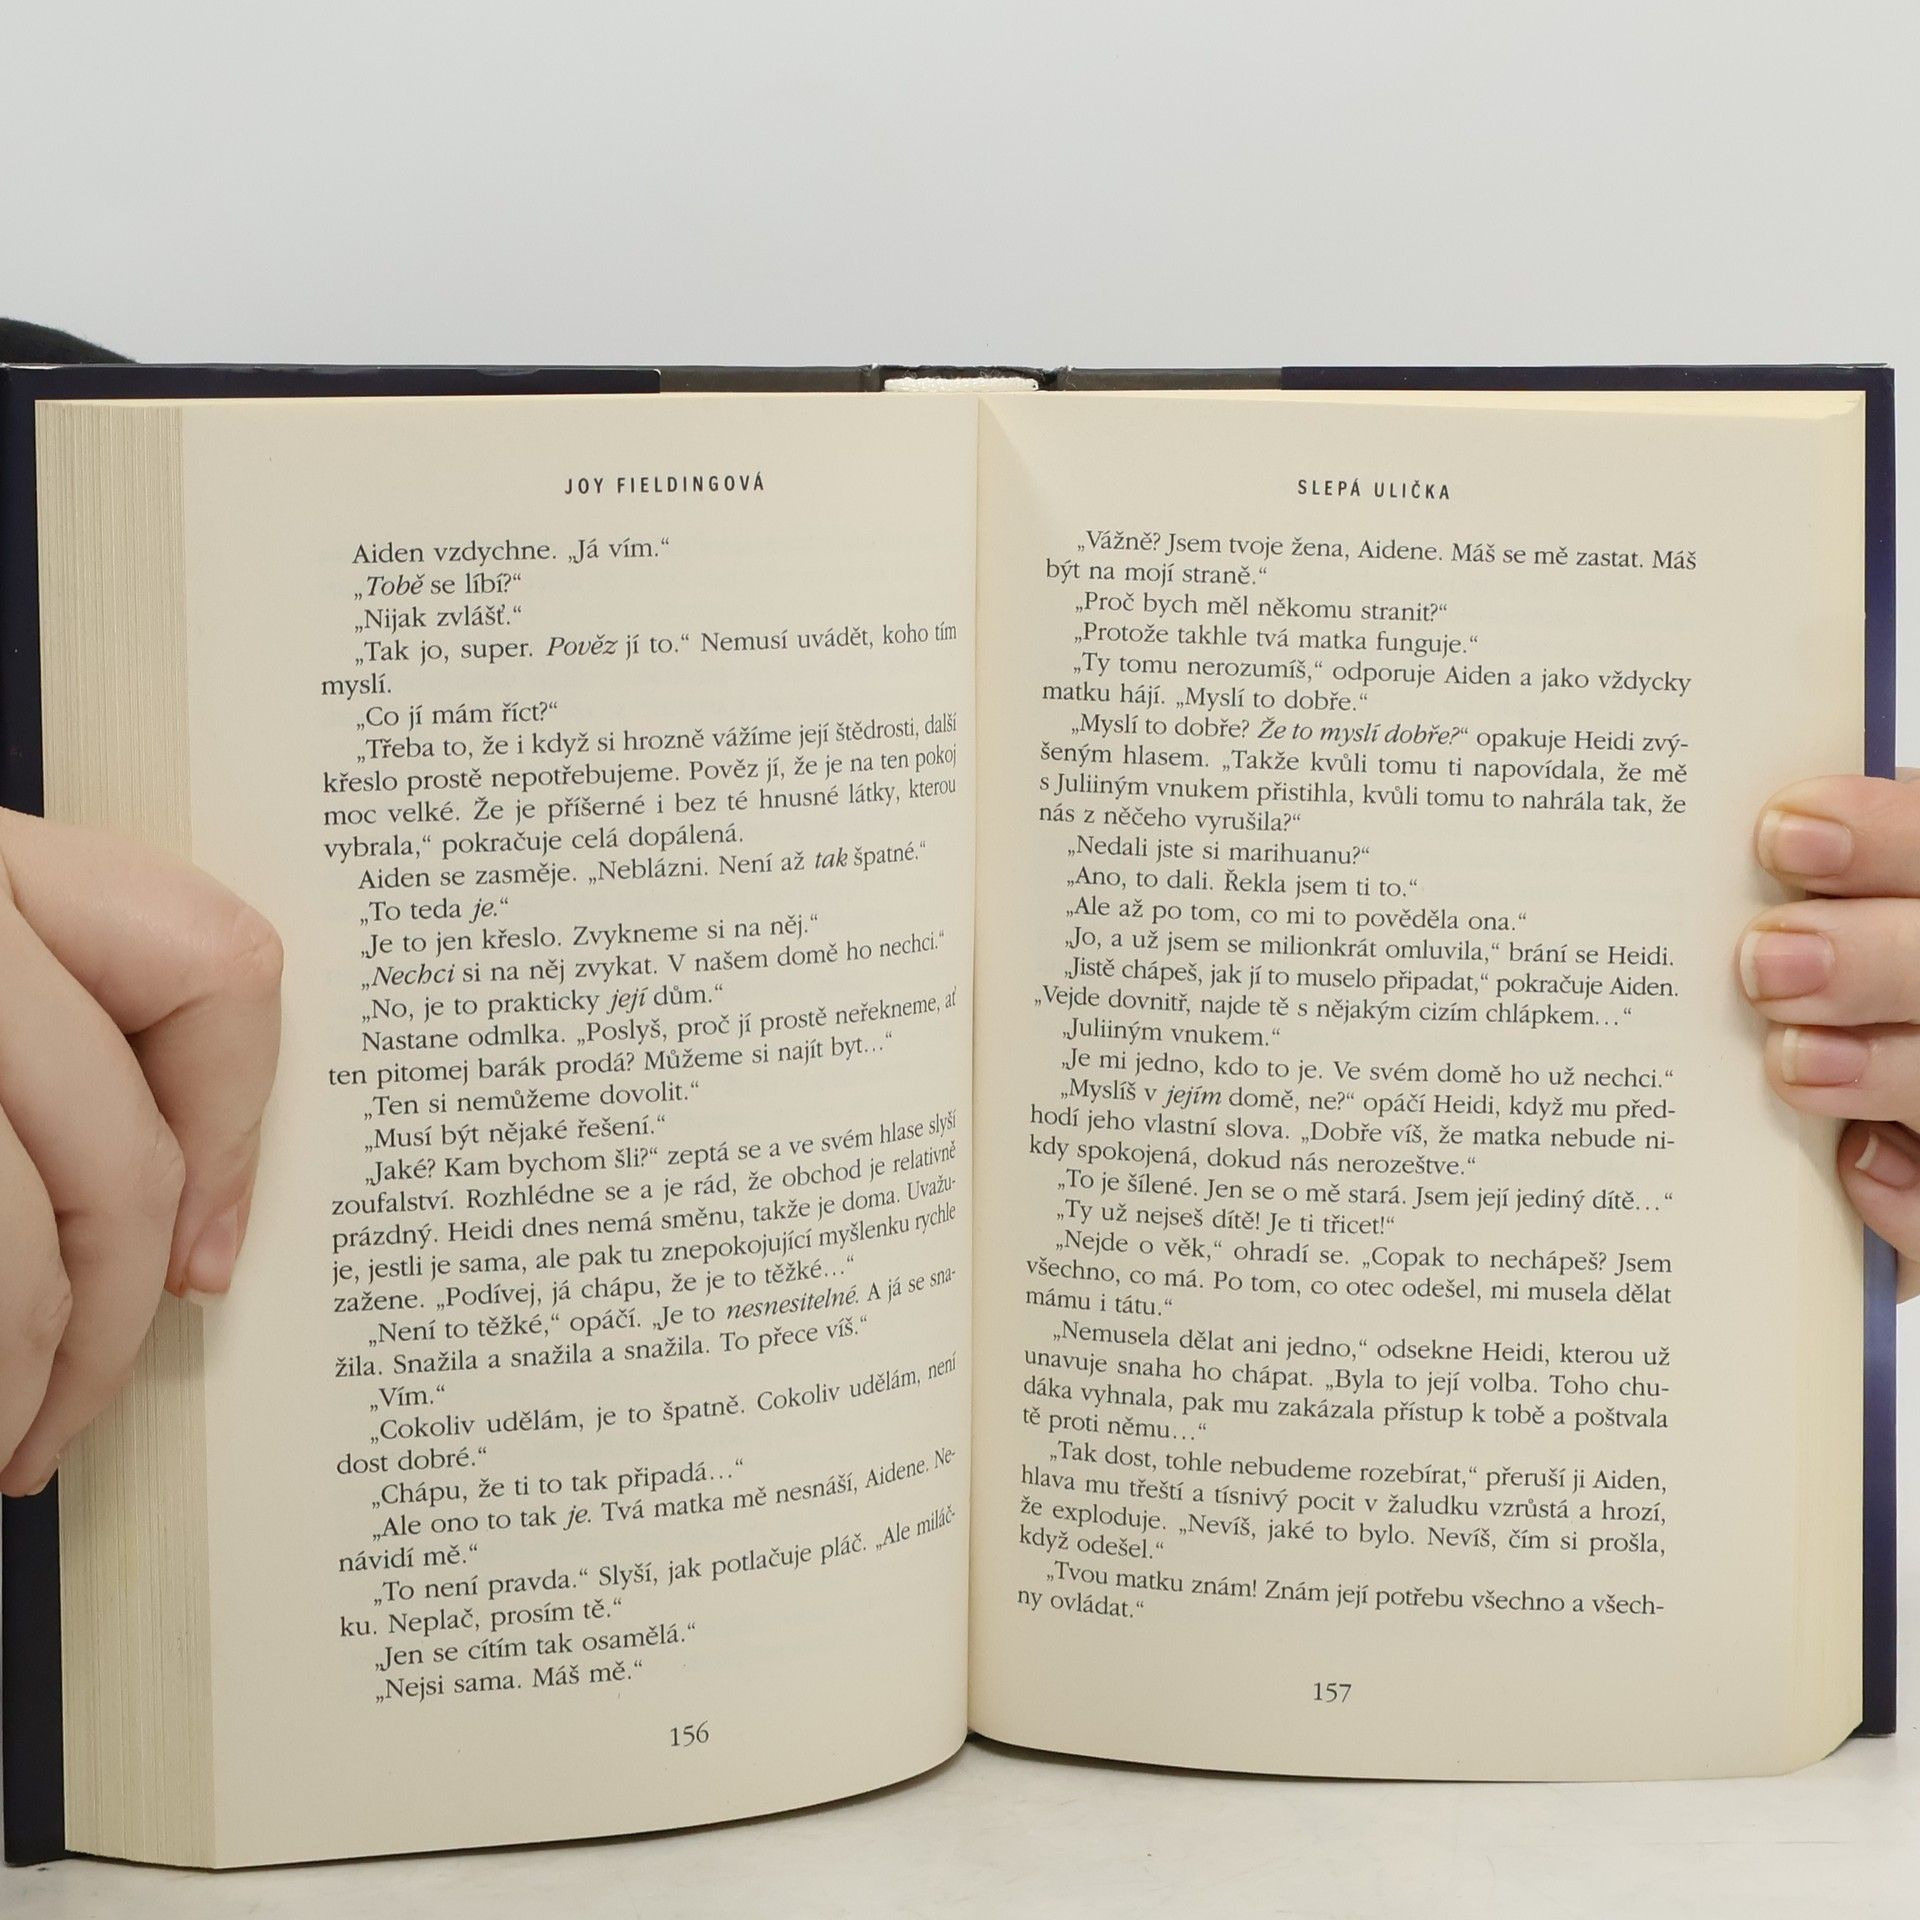 JOY FIELDINGOVÁ
Aiden vzdychne. „Já vím.“
„Tobě se líbí?“
„Nijak zvlášť.“
„Tak jo, super. Pověz jí to.“ Nemusí uvádět, koho tím
myslí.
„Co jí mám říct?“
„Třeba to, že i když si hrozně vážíme její štědrosti, další
křeslo prostě nepotřebujeme. Pověz jí, že je na ten pokoj
moc velké. Že je příšerné i bez té hnusné látky, kterou
vybrala,“ pokračuje celá dopálená.
Aiden se zasměje. „Neblázni. Není až tak špatné.“
„To teda je.“
„Je to jen křeslo. Zvykneme si na něj.“
„Nechci si na něj zvykat. V našem domě ho nechci.“
„No, je to prakticky její dům.“
Nastane odmlka. „Poslyš, proč jí prostě neřekneme, ať
ten pitomej barák prodá? Můžeme si najít byt…“
„Ten si nemůžeme dovolit.“
„Musí být nějaké řešení.“
„Jaké? Kam bychom šli?“ zeptá se a ve svém hlase slyší
zoufalství. Rozhlédne se a je rád, že obchod je relativně
prázdný. Heidi dnes nemá směnu, takže je doma. Uvažu-
je, jestli je sama, ale pak tu znepokojující myšlenku rychle
zažene. „Podívej, já chápu, že je to těžké…“
„Není to těžké,“ opáčí. „Je to nesnesitelné. A já se sna-
žila. Snažila a snažila a snažila. To přece víš.“
„Vím.“
„Cokoliv udělám, je to špatně. Cokoliv udělám, není
dost dobré.“
„Chápu, že ti to tak připadá…“
„Ale ono to tak je. Tvá matka mě nesnáší, Aidene. Ne-
návidí mě.“
„To není pravda.“ Slyší, jak potlačuje pláč. „Ale miláč-
ku. Neplač, prosím tě.“
„Jen se cítím tak osamělá.“
„Nejsi sama. Máš mě.“
156
SLEPÁ ULIČKA
„Vážně? Jsem tvoje žena, Aidene. Máš se mě zastat. Máš
být na mojí straně.“
„Proč bych měl někomu stranit?“
„Protože takhle tvá matka funguje.“
„Ty tomu nerozumíš,“ odporuje Aiden a jako vždycky
matku hájí. „Myslí to dobře.“
„Myslí to dobře? Že to myslí dobře?“ opakuje Heidi zvý-
šeným hlasem. „Takže kvůli tomu ti napovídala, že mě
s Juliiným vnukem přistihla, kvůli tomu to nahrála tak, že
nás z něčeho vyrušila?“
„Nedali jste si marihuanu?“
„Ano, to dali. Řekla jsem ti to.“
„Ale až po tom, co mi to pověděla ona.“
„Jo, a už jsem se milionkrát omluvila,“ brání se Heidi.
„Jistě chápeš, jak jí to muselo připadat,“ pokračuje Aiden.
„Vejde dovnitř, najde tě s nějakým cizím chlápkem…“
„Juliiným vnukem.“
„Je mi jedno, kdo to je. Ve svém domě ho už nechci.“
„Myslíš v jejím domě, ne?“ opáčí Heidi, když mu před-
hodí jeho vlastní slova. „Dobře víš, že matka nebude ni-
kdy spokojená, dokud nás nerozeštve.“
„To je šílené. Jen se o mě stará. Jsem její jediný dítě…“
„Ty už nejseš dítě! Je ti třicet!“
„Nejde o věk,“ ohradí se. „Copak to nechápeš? Jsem
všechno, co má. Po tom, co otec odešel, mi musela dělat
mámu i tátu.“
„Nemusela dělat ani jedno,“ odsekne Heidi, kterou už
unavuje snaha ho chápat. „Byla to její volba. Toho chu-
dáka vyhnala, pak mu zakázala přístup k tobě a poštvala
tě proti němu…“
„Tak dost, tohle nebudeme rozebírat,“ přeruší ji Aiden,
hlava mu třeští a tísnivý pocit v žaludku vzrůstá a hrozí,
že exploduje. „Nevíš, jaké to bylo. Nevíš, čím si prošla,
když odešel.“
„Tvou matku znám! Znám její potřebu všechno a všech-
ny ovládat.“
157